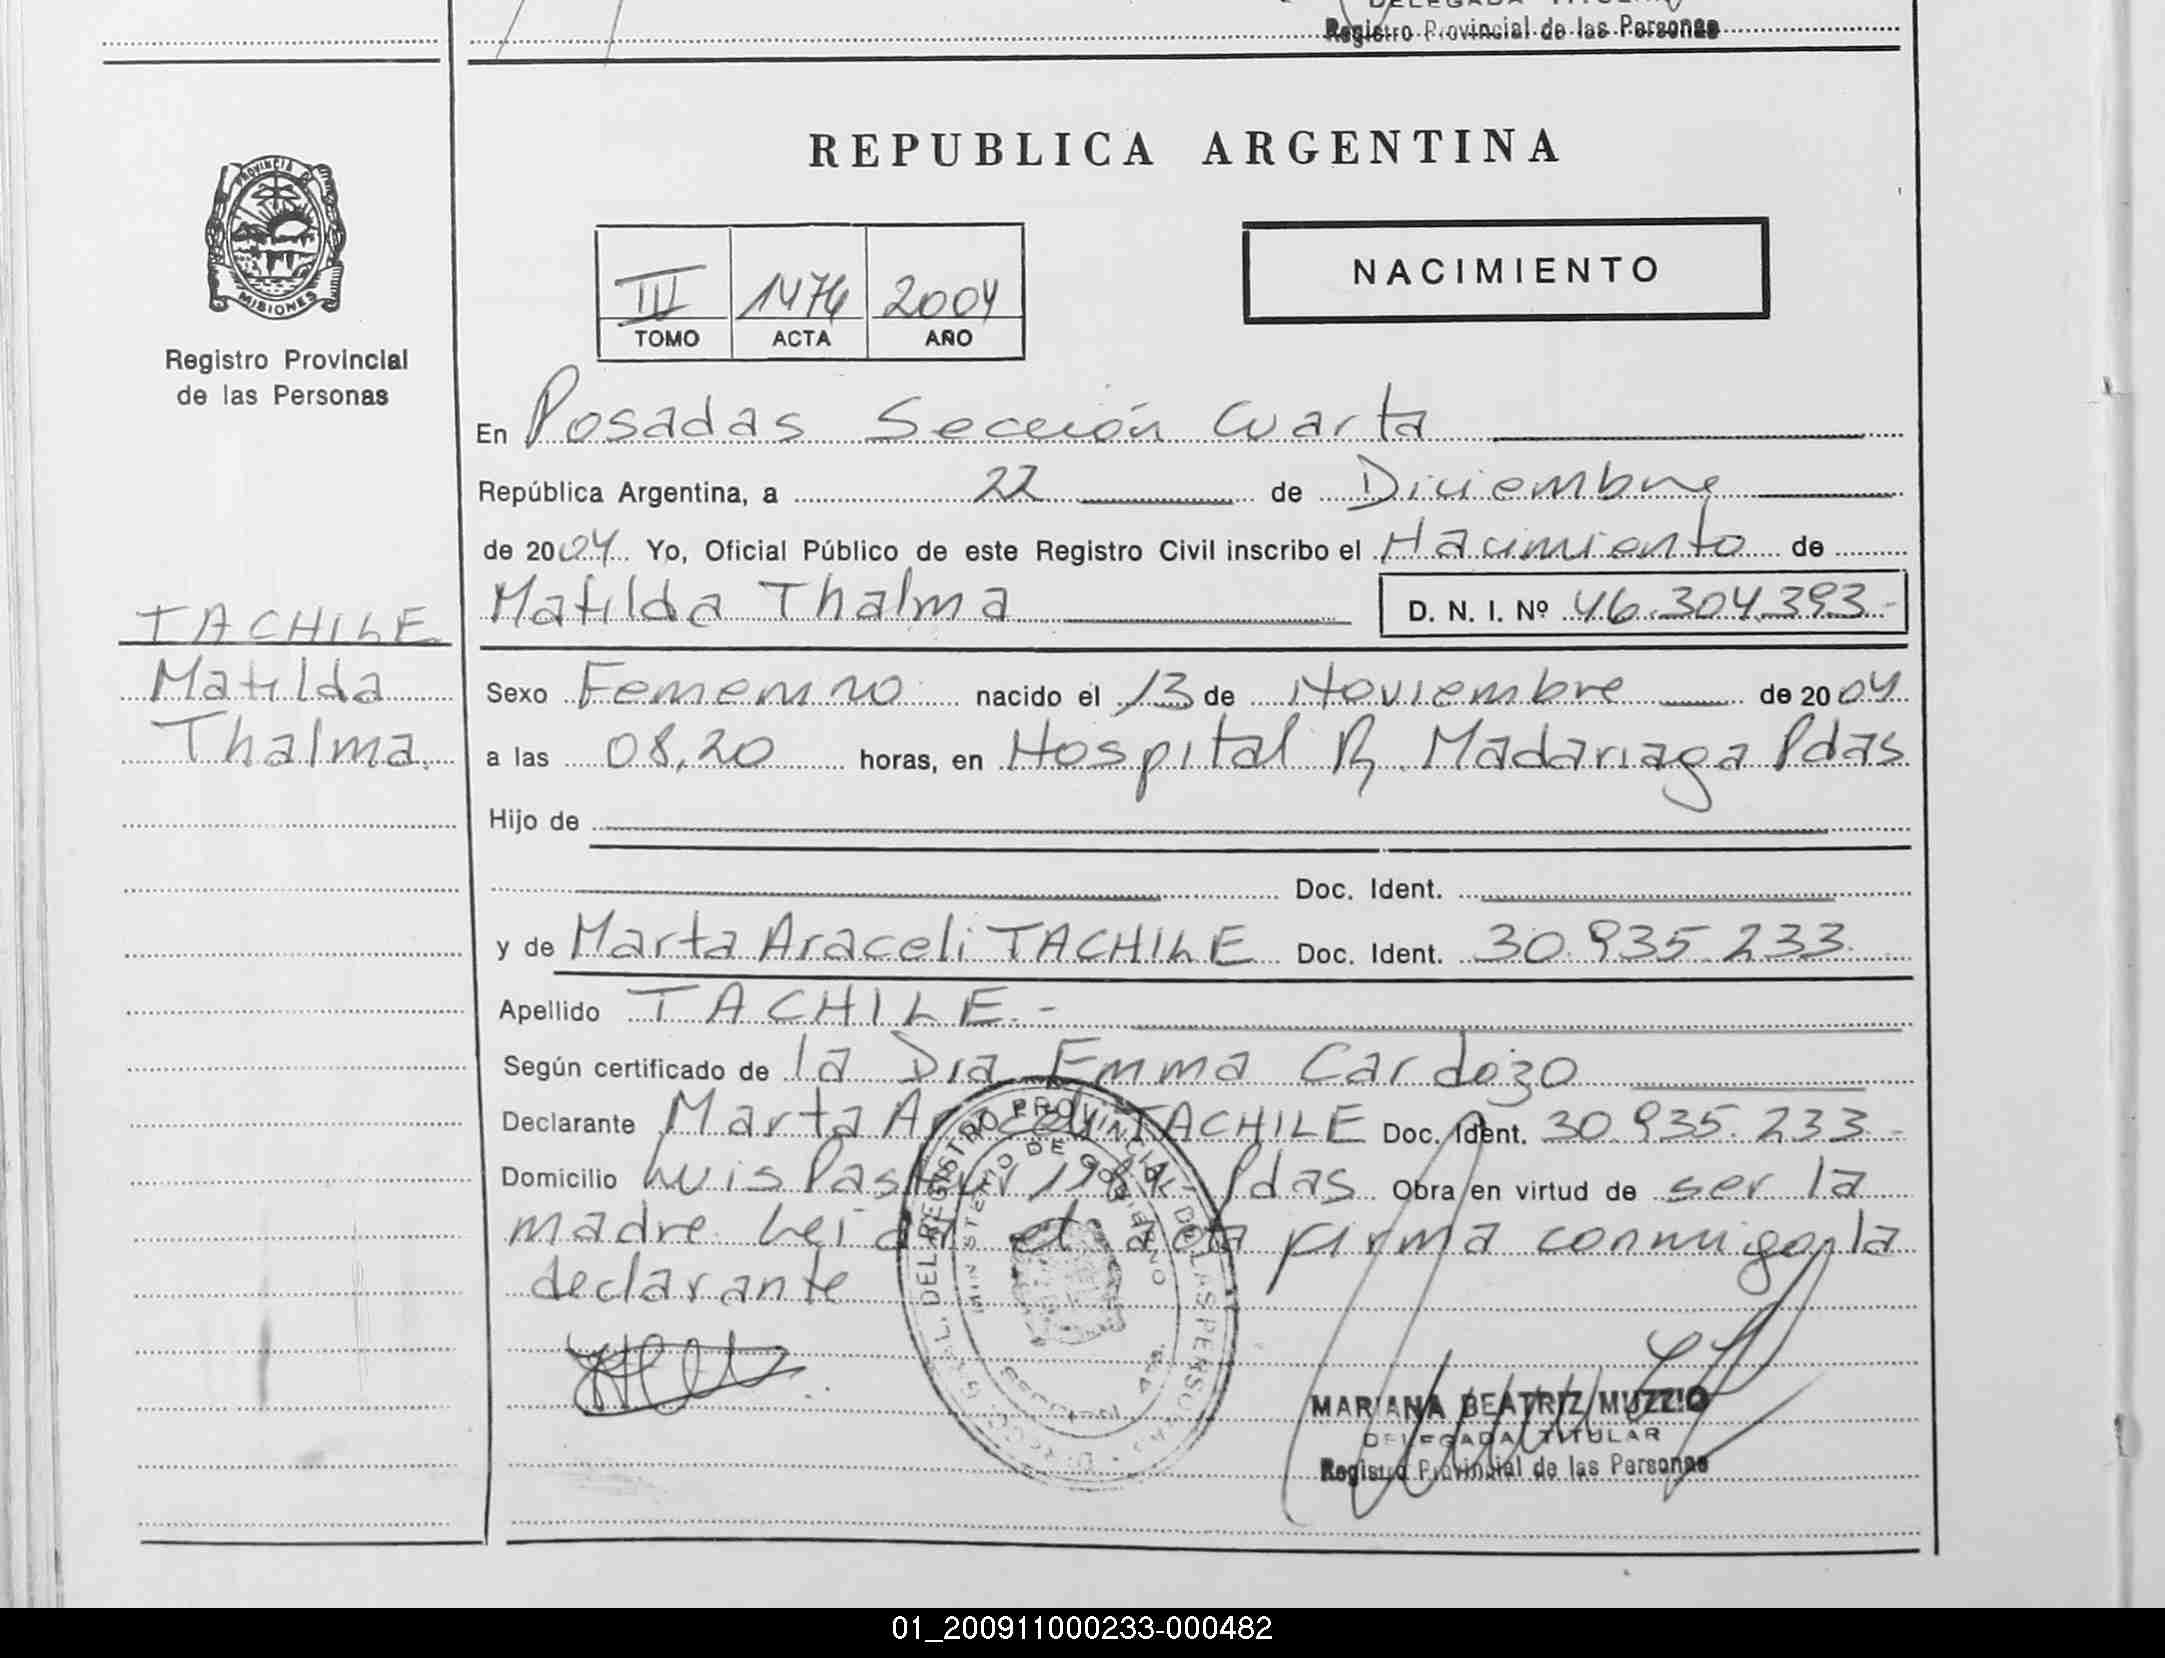 Registro Provincial de las Personas
PROVINCIA DE
MISIONES
Registro Provincial
de las Personas
TACHILE
Matilda
Thalma.
REPUBLICA ARGENTINA
III 1476 2004
TOMO ACTA AÑO
NACIMIENTO
En Posadas Sección Cuarta
República Argentina, a 22 de Diciembre
de 2004 Yo, Oficial Público de este Registro Civil inscribo el Nacimiento de
Matilda Thalma D. N. I. Nº 46.304.393-
Sexo Femenino nacido el 13 de Noviembre de 2004
a las 08,20 horas, en Hospital R. Madariaga Pdas
Hijo de
Doc. Ident.
y de Marta Araceli TACHILE Doc. Ident. 30.935.233.
Apellido TACHILE.-
Según certificado de la Dra Emma Cardozo
Declarante Marta Araceli TACHILE Doc. Ident. 30.935.233-
Domicilio Luis Pasteur Pdas Obra en virtud de ser la
madre. Leida el acta firma conmigo la
declarante
DEL REGISTRO PROVINCIAL DE LAS PERSONAS
MINISTERIO DE GOBIERNO
MARIANA BEATRIZ MUZZIO
DELEGADA TITULAR
Registro Provincial de las Personas
01_200911000233-000482